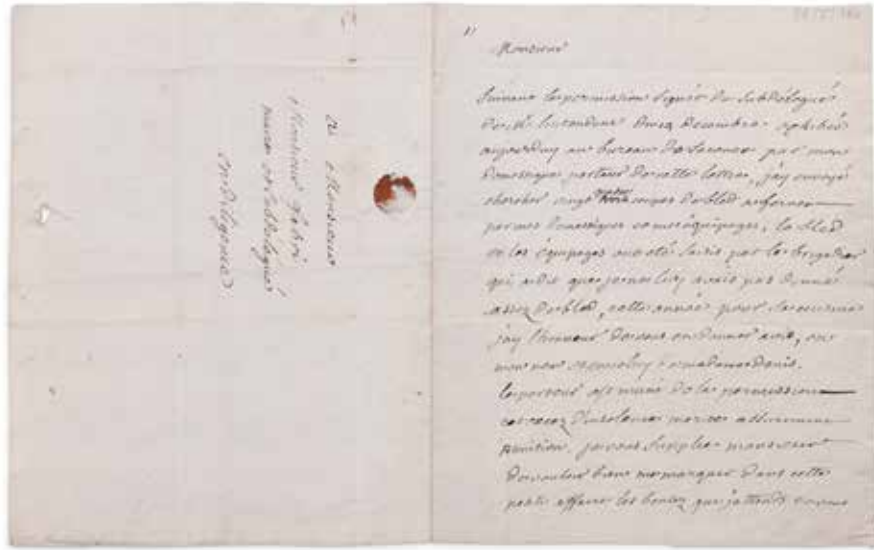 a Monsieur
Monsieur Fabri
maire et subdelegué
en diligence
Monsieur
Suivant la permission signée du subdelegué
de Mr l'intendant decembre exhibée
aujourduy au bureau de Saconex par mon
domestique porteur de cette lettre, j'ay envoyé
chercher vingt coupes de bled
par mes domestiques et mes équipages, le bled
et les équipages ont été saisis par le brigadier
qui a dit que je ne luy avais pas donné
assez de bled, cette année pour
j'ay l'honneur de vous en donner avis, en
mon nom et en celuy de madame Denis.
le porteur est muni de la permission
cet excez d'insolence merite assurement
punition. je vous suplie monsieur
de vouloir bien me marquer dans cette
petite affaire les bontez que j'attends de vous